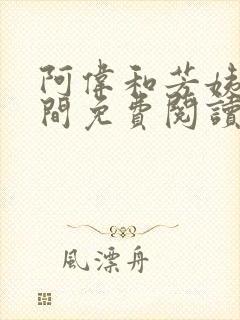 阿偉和芳姨
間免費閱讀
風漂舟